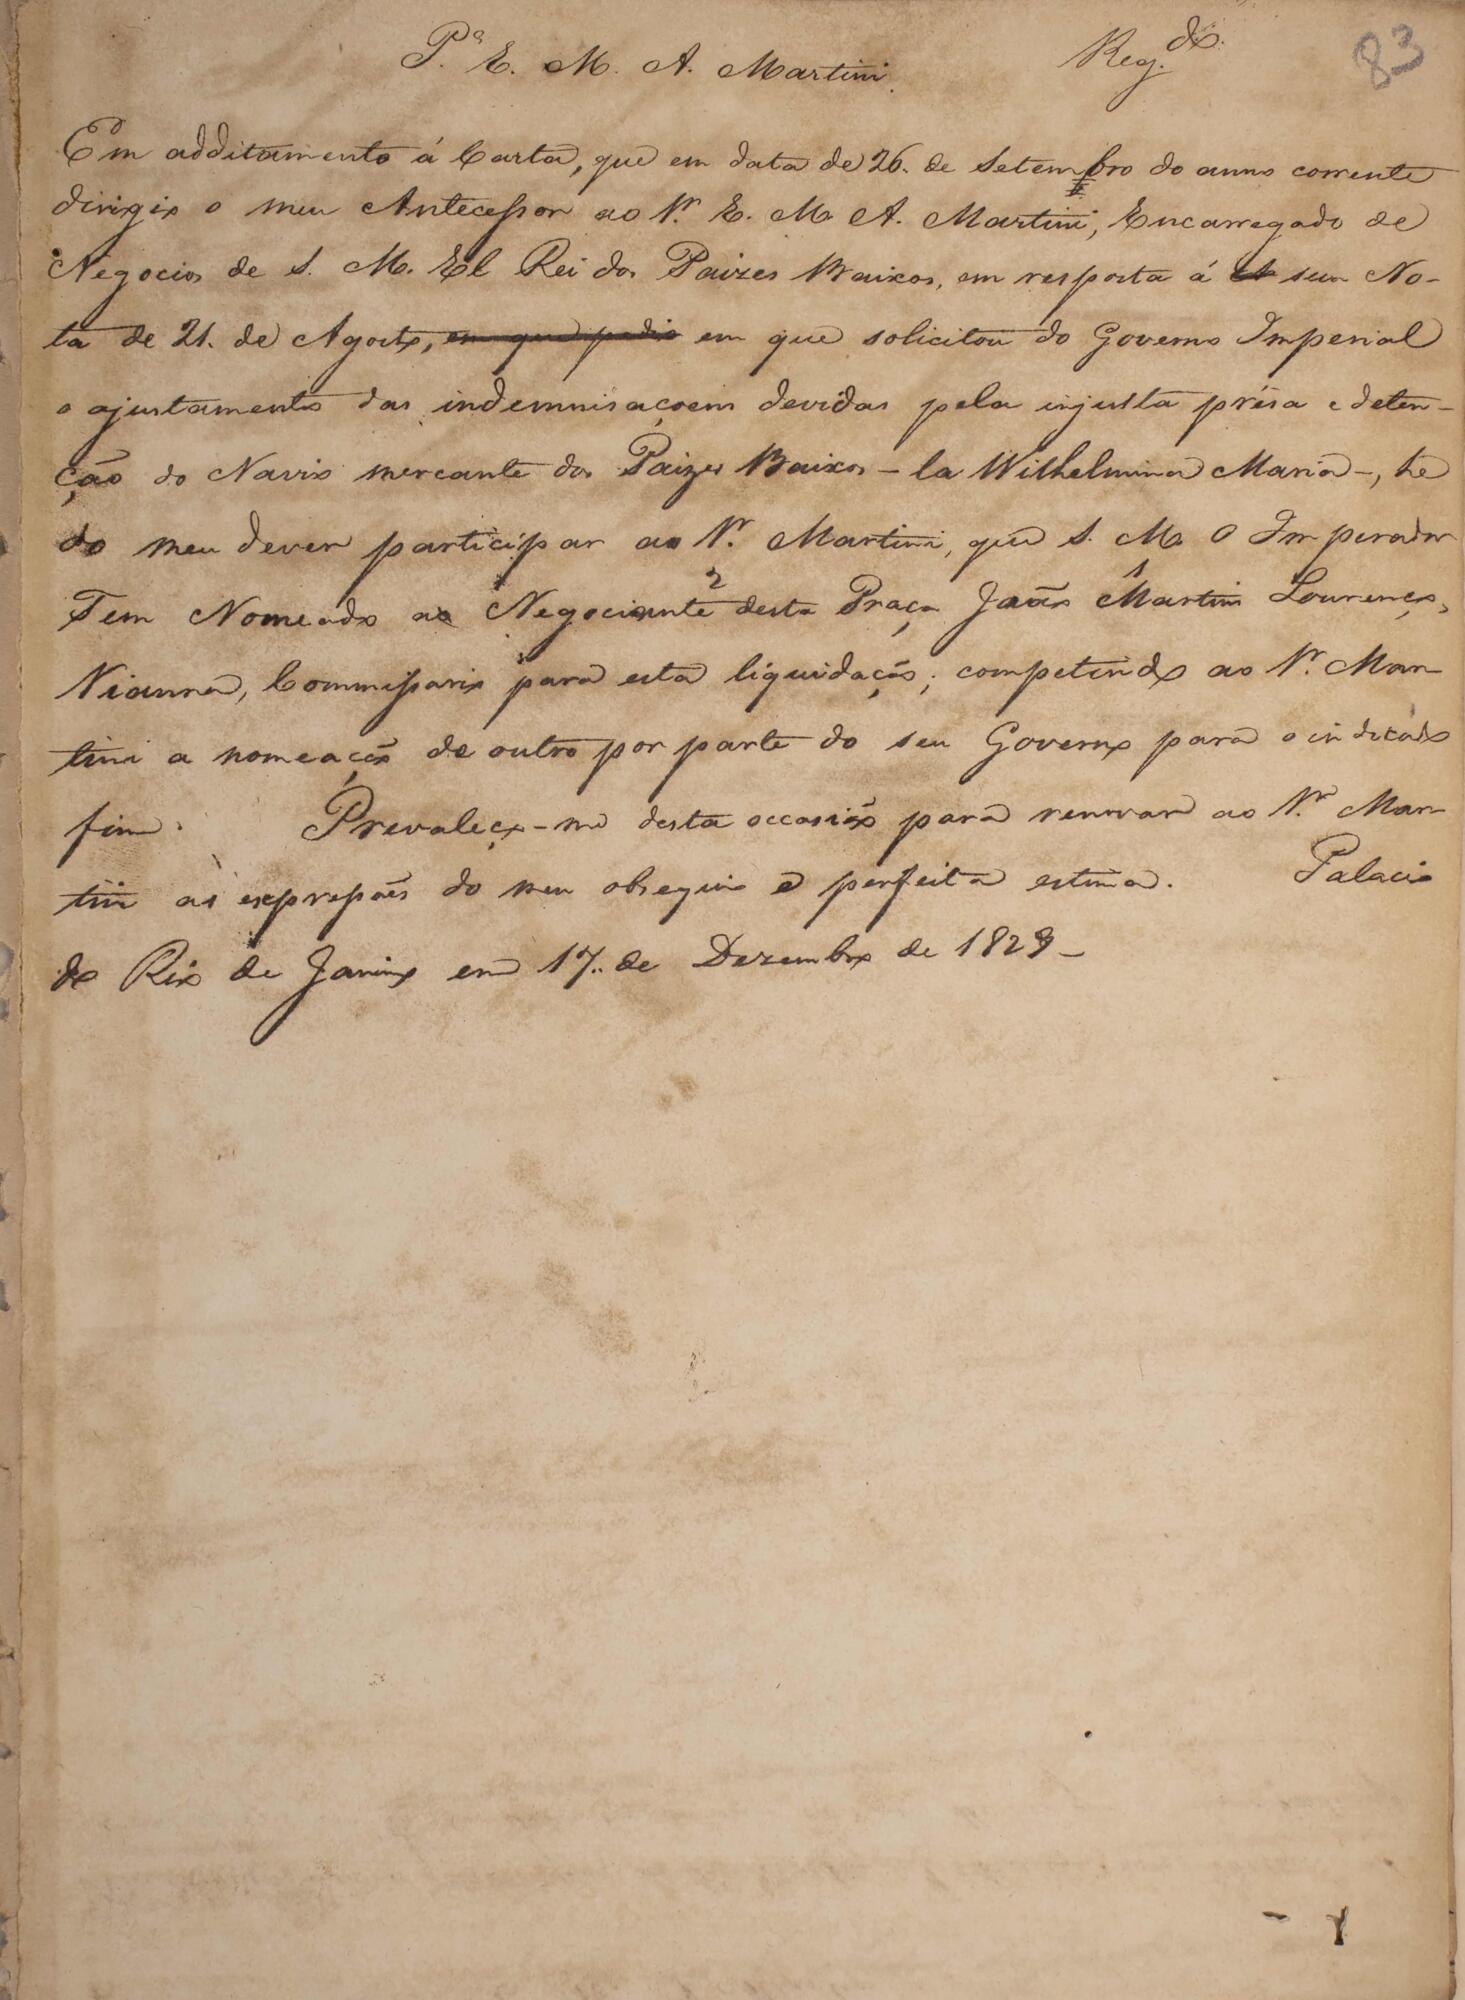 Pª E. M. A. Martini. Reg.do 83
Em additamento á Carta, que em data de 26. de Setembro do anno corrente
dirigio o meu Antecessor ao Sr. E. M. A. Martini, Encarregado de
Negocios de S. M. El Rei dos Paizes Baixos, em resposta á sua No-
ta de 21. de Agosto, em que pedio em que solicitou do Governo Imperial
o ajustamento das indemnisaçoens devidas pela injusta présa e deten-
ção do Navio mercante dos Paizes Baixos - la Wilhelmina Maria -, he
do meu dever participar ao Sr. Martini, que S. M. O Imperador
Tem Nomeado ao Negociante 2 desta Praça João 1 Martins Lourenço,
Vianna, Commissario para esta liquidação; competindo ao Sr. Mar-
tini a nomeação de outro por parte do seu Governo para o indicado
fim. Prevaleço-me desta occasião para renovar ao Sr. Mar-
tini as expressoés do meu obsequio e perfeita estima. Palacio
do Rio de Janeiro em 17. de Dezembro de 1829 -